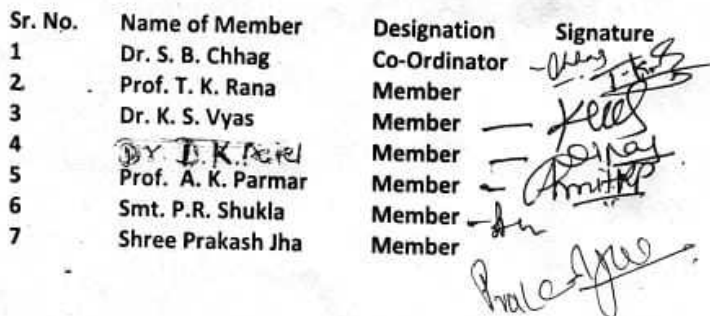 Sr. No. Name of Member Designation Signature
1 Dr. S. B. Chhag Co-Ordinator
2 Prof. T. K. Rana Member
3 Dr. K. S. Vyas Member
4 Dr. D. K. Member
5 Prof. A. K. Parmar Member
6 Smt. P.R. Shukla Member
7 Shree Prakash Jha Member